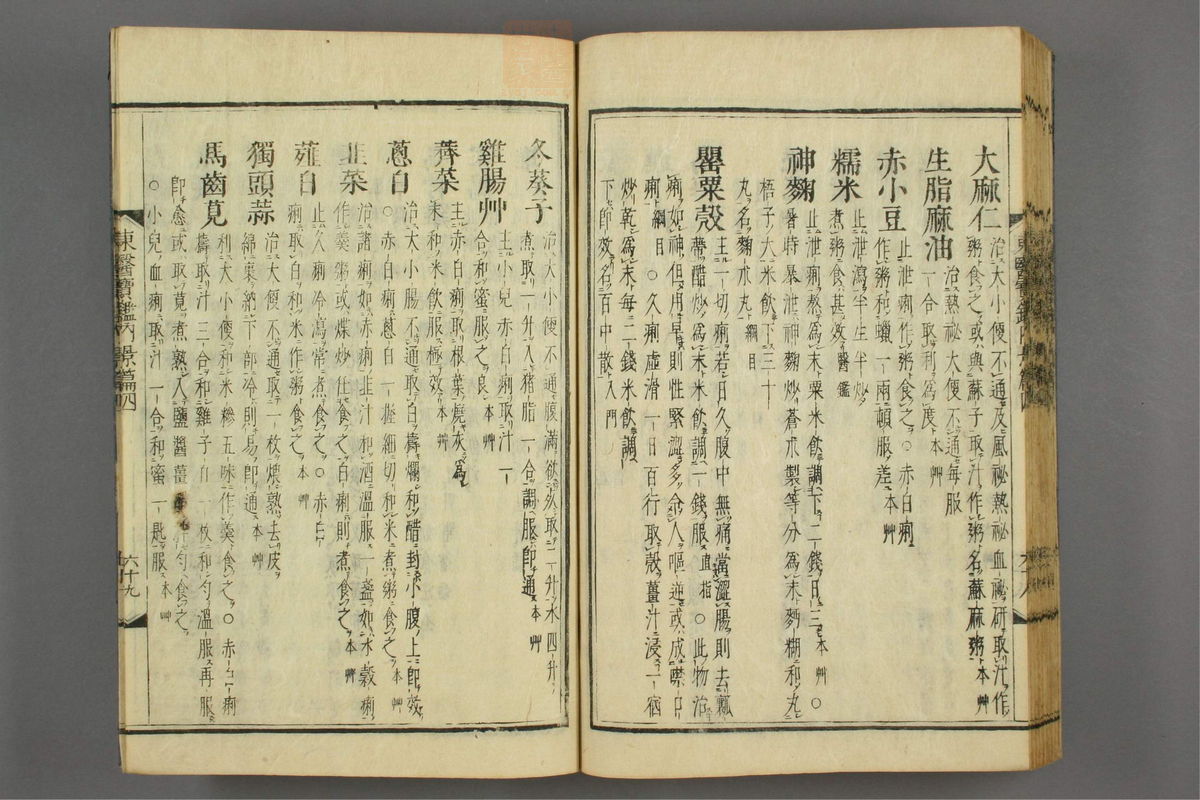 大麻仁 治大小便不通及風祕熱祕血祕研取汁作
粥食之或與蘇子取汁作粥名蘇麻粥本艸
生脂麻油 治熱祕大便不通每服
一合取利為度本艸
赤小豆 止泄痢作粥食之○赤白痢
作粥和蠟一兩頓服差本艸
糯米 止泄瀉半生半炒
煮粥食甚效醫鑑
神麴 止泄痢熬為末粟米飲調下二錢日三本艸○
暑時暴泄神麴炒蒼朮製等分為末麪糊和丸
梧子大米飲下三十
丸名麴朮丸綱目
罌粟殼 主一切痢若日久腹中無痛當澁腸則去瓤
蔕醋炒為末米飲調一錢服直指○此物治
痢如神但用早則性緊澁多令人嘔逆或成噤口
痢綱目○久痢虛滑一日百行取殼薑汁浸一宿
炒乾為末每二錢米飲調
下即效名百中散入門
東醫寶鑑內景篇四
冬葵子 治大小便不通腹滿欲死取二升水四升
煮取一升入猪脂一合調服即通本艸
雞腸艸 主小兒赤白痢取汁一
合和蜜服之良本艸
薺菜 主赤白痢取根葉燒灰為
末和米飲服極效本艸
蔥白 治大小腸不通取白擣爛和醋封小腹上即效
○赤白痢蔥白一握細切和米煮粥食之本艸
韭菜 治諸痢如赤痢韭汁和酒溫服一盞如水穀痢
作羹粥或煠炒任食之白痢則煮食之本艸
薤白 止久痢冷瀉常煮食之○赤白
痢取白和米作粥食之本艸
獨頭蒜 治大便不通取一枚煨熟去皮
綿裹納下部冷則易即通本艸
馬齒莧 利大小便和米糝五味作羹食之○赤白痢
擣取汁三合和雞子白一枚和勻溫服再服
即愈或取莧煮熟入鹽醬薑
勻食之
○小兒血痢取汁一合和蜜一匙服本艸
東醫寶鑑內景篇四
六十九